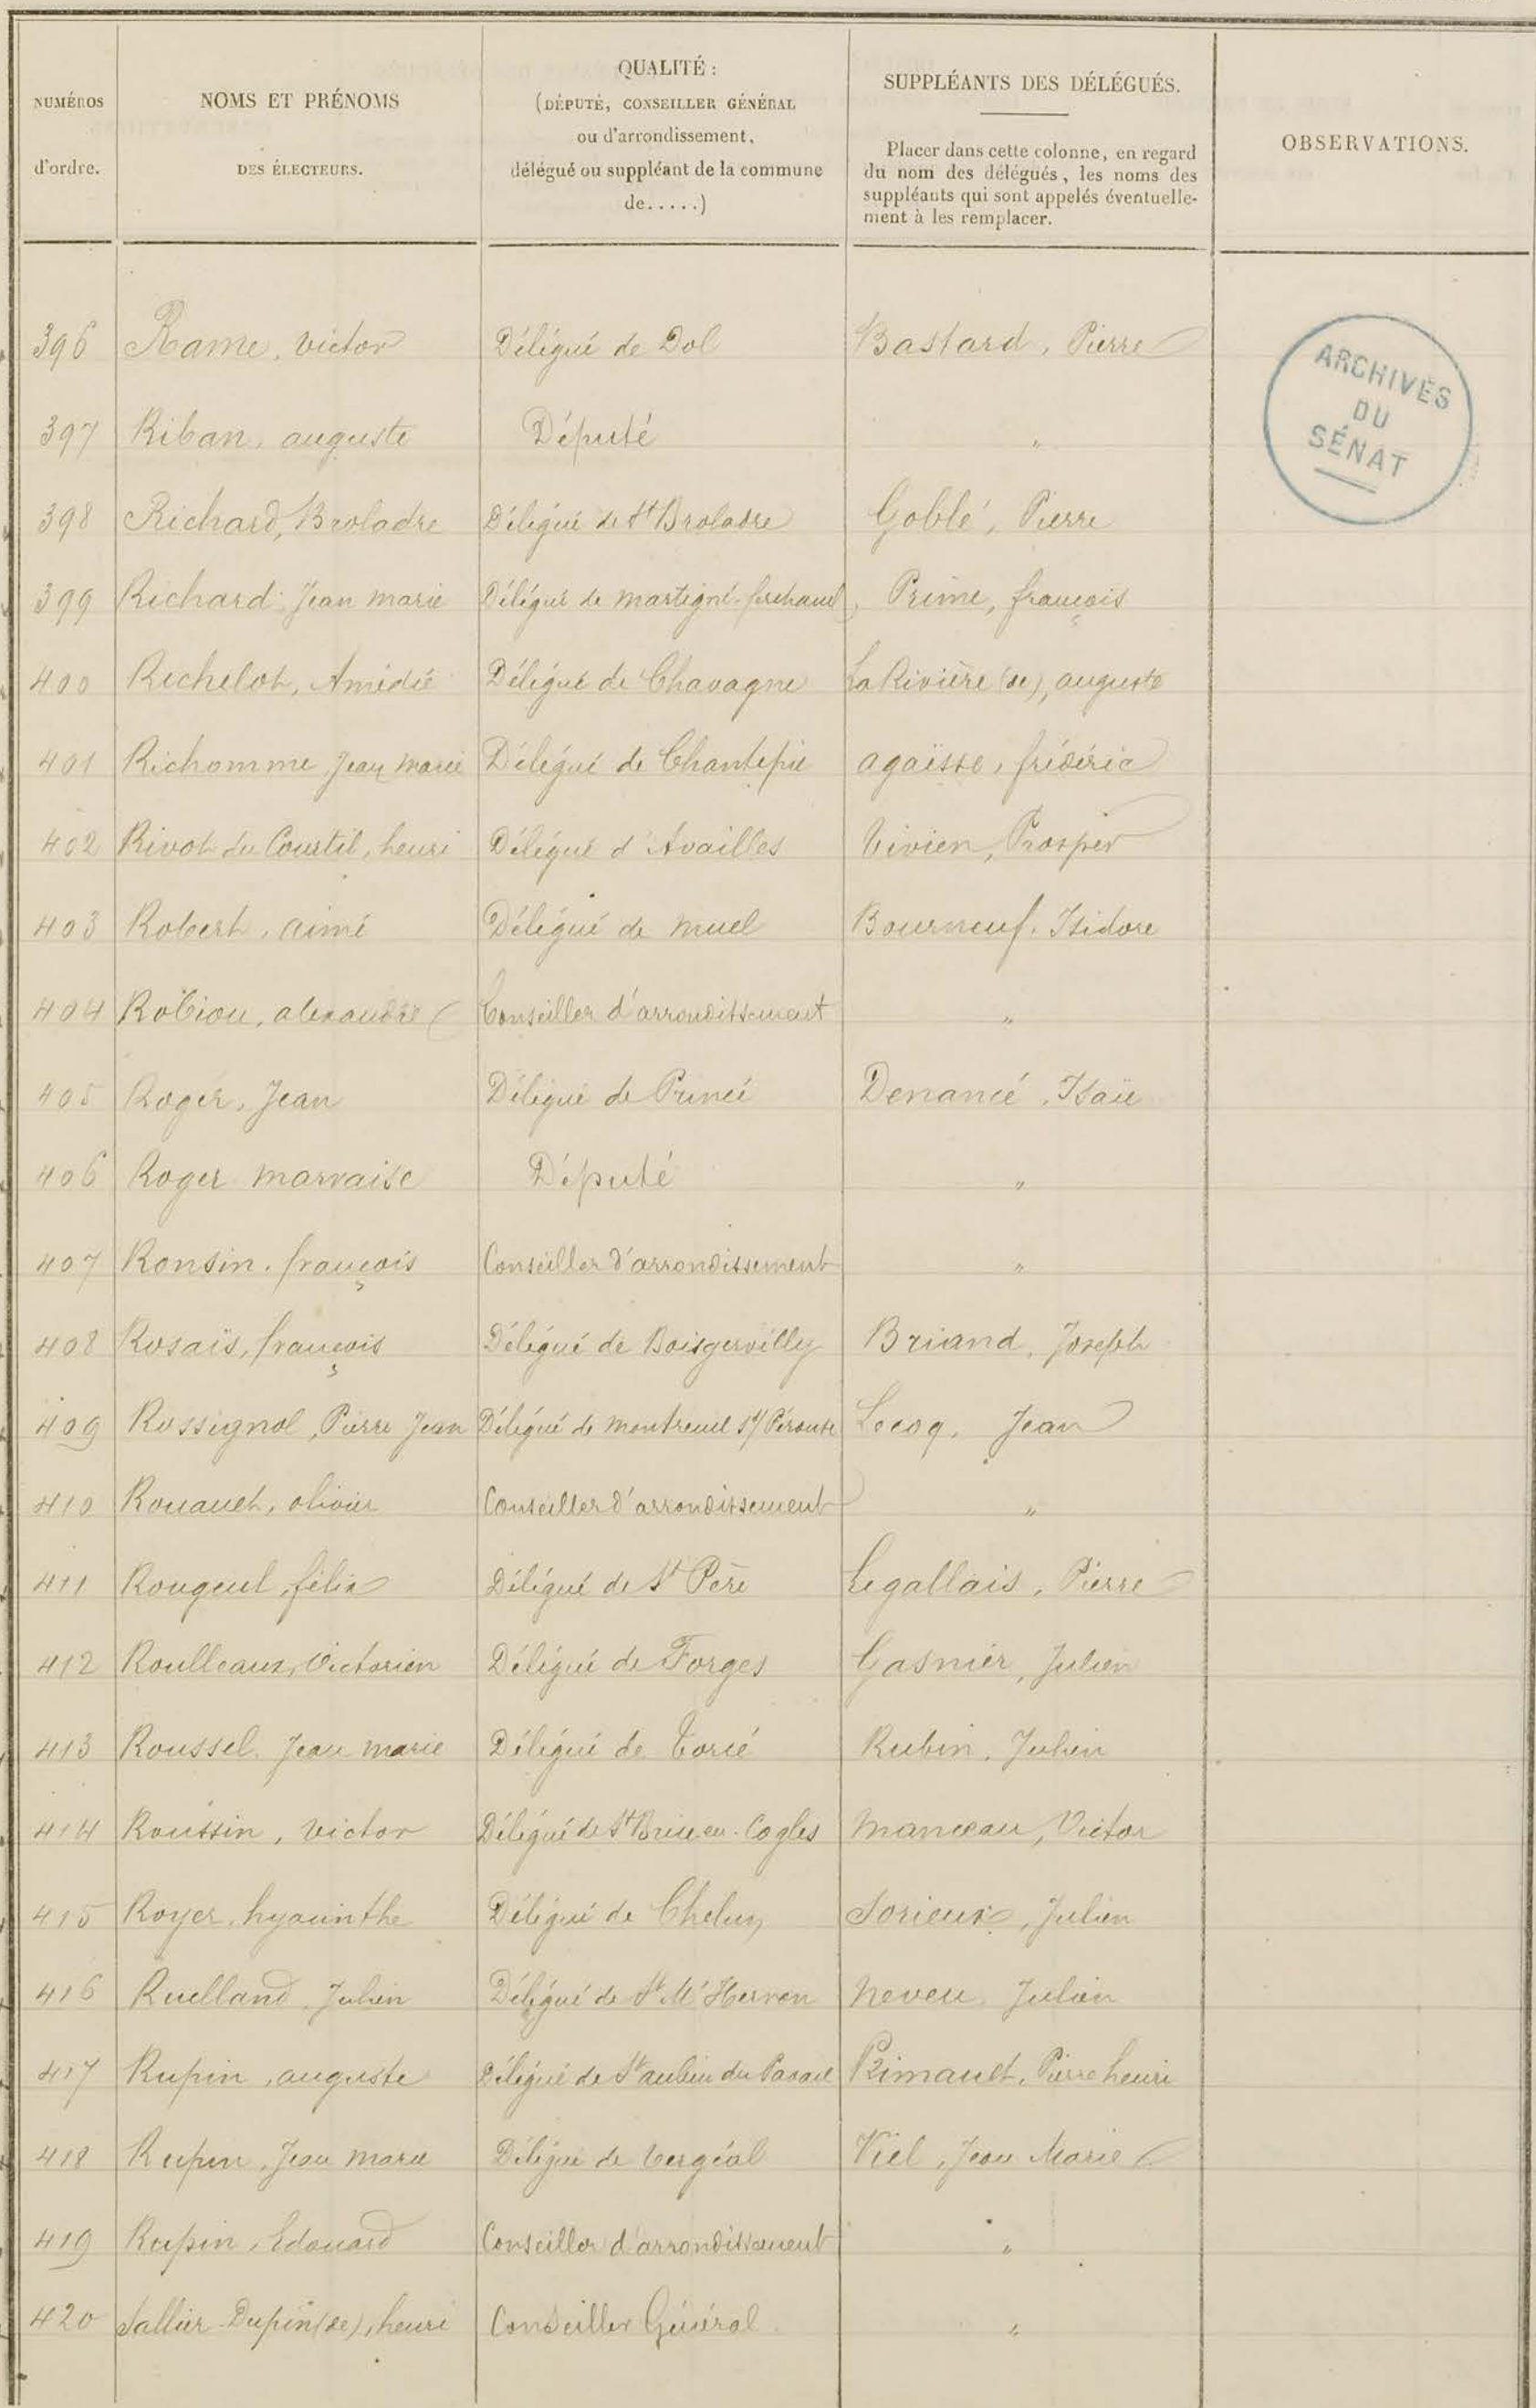 NUMÉROS
d'ordre.
NOMS ET PRÉNOMS
DES ÉLECTEURS.
QUALITÉ :
(DÉPUTÉ, CONSEILLER GÉNÉRAL
ou d'arrondissement,
délégué ou suppléant de la commune
de.....)
SUPPLÉANTS DES DÉLÉGUÉS.
Placer dans cette colonne, en regard
du nom des délégués, les noms des
suppléants qui sont appelés éventuelle-
ment à les remplacer.
OBSERVATIONS.
396 Rame, victor Délégué de Dol Bastard, Pierre
397 Riban, auguste Député "
398 Richard, Broladre Délégué de St Broladre Goblé, Pierre
399 Richard Jean marie Délégué de martigné-ferchaud Prime, françois
400 Richelot, Amédée Délégué de Chavagne La Rivière (de), auguste
401 Richomme Jean marie Délégué de Chantepie agaïsse, frédéric
402 Rivot du Courtil, henri Délégué d'Availles Vivien, Prosper
403 Robert, aimé Délégué de muel Bourneuf, Isidore
404 Robiou, alexandre Conseiller d'arrondissement "
405 Roger, Jean Délégué de Princé Denancé, Isaïe
406 Roger marvaise Député "
407 Ronsin, françois Conseiller d'arrondissement "
408 Rosaïs, françois Délégué de Boisgervilly Briand, Joseph
409 Rossignol, Pierre Jean Délégué de montreuil s/ Pérouse Lecoq, Jean
410 Rouault, olivier Conseiller d'arrondissement "
411 Rougeul, félix Délégué de St Père Legallais, Pierre
412 Roulleaux, Victorien Délégué de Forges Gasnier, Julien
413 Roussel, Jean marie Délégué de Torcé Rubin, Julien
414 Roussin, victor Délégué de St Brice en Cogles manceau, Victor
415 Royer, hyacinthe Délégué de Chelun Sorieux, Julien
416 Ruelland, Julien Délégué de St M' Hervon neveu, Julien
417 Rupin, auguste Délégué de St aubin du Pavail Rimault, Pierre henri
418 Rupin, Jean marie Délégué de Vergéal Viel, Jean Marie
419 Rupin, Edouard Conseiller d'arrondissement "
420 Sallier Dupin (de), henri Conseiller Général "
ARCHIVES
DU
SÉNAT